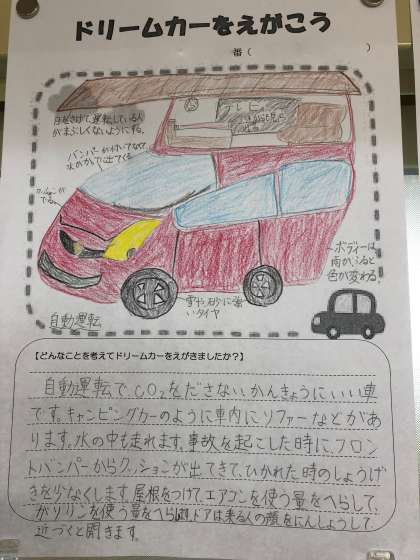 ドリームカーをえがこう
番(　　　)
日をさけて運転している人
がまぶしくないようにする。
テレビ
バンパーが
水の
出てくる
クッションが
でる
ボディーは
雨がふると
色が変わる。
雪や砂に強
いタイヤ
自動運転
【どんなことを考えてドリームカーをえがきましたか?】
自動運転でCO2をださないかんきょうにいい車
です。キャンピングカーのように車内にソファーなどがあ
ります。水の中も走れます。事故を起こした時に、フロン
トバンパーからクッションが出てきて、ひかれた時のしょうげ
きを少なくします。屋根をつけて、エアコンを使う量をへらして、
ガソリンを使う量をへらします。ドアは来る人の顔をにんしょうして
近づくと開きます。